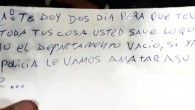 TE DOY DOS DIA PARA QUE TE
TODA TUS COSA USTED SAVE LO QU
EL DEPARTAMENTO VACIO, SI VA
POLICIA LE VAMOS AMATAR ASU